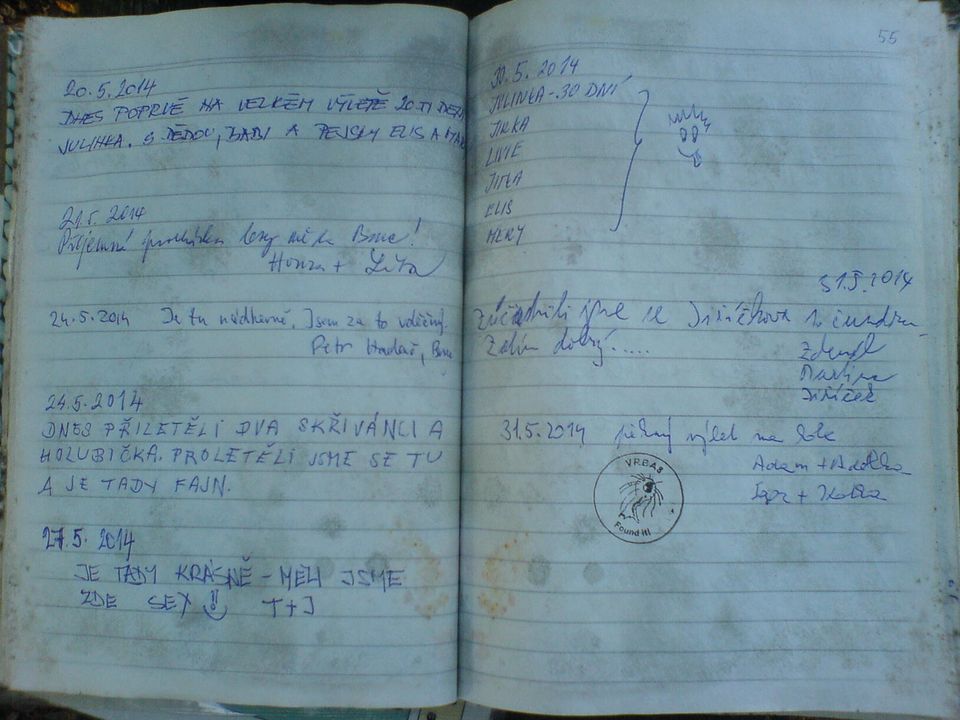 20.5.2014
DNES POPRVÉ NA VELKÉM VÝLETĚ 20.TI DENNÍ
JULINKA. S DĚDOU, BABI A PEJSKY ELIS A
21.5. 2014
Příjemná procházka lesy
Honza +
24.5.2014 Je tu nádherně. Jsem za to vděčný.
Petr
24.5.2014
DNES PŘILETĚLI DVA SKŘIVÁNCI A
HOLUBIČKA. PROLETĚLI JSME SE TU
A JE TADY FAJN.
27.5. 2014
JE TADY KRÁSNĚ - MĚLI JSME
ZDE SEX T+J
55
30.5.2014
JULINKA - 30 DNÍ
JIRKA
LIVIE
JITKA
ELIS
MERY
31.5.2014
Zúčastnili jsme se Jiříčkova
Zatím dobrý.....
Zdeněk
Martina
Jiříček
31.5.2014 pěkný výlet na kole
Adam +
Igor +
VRBAS
Found it!